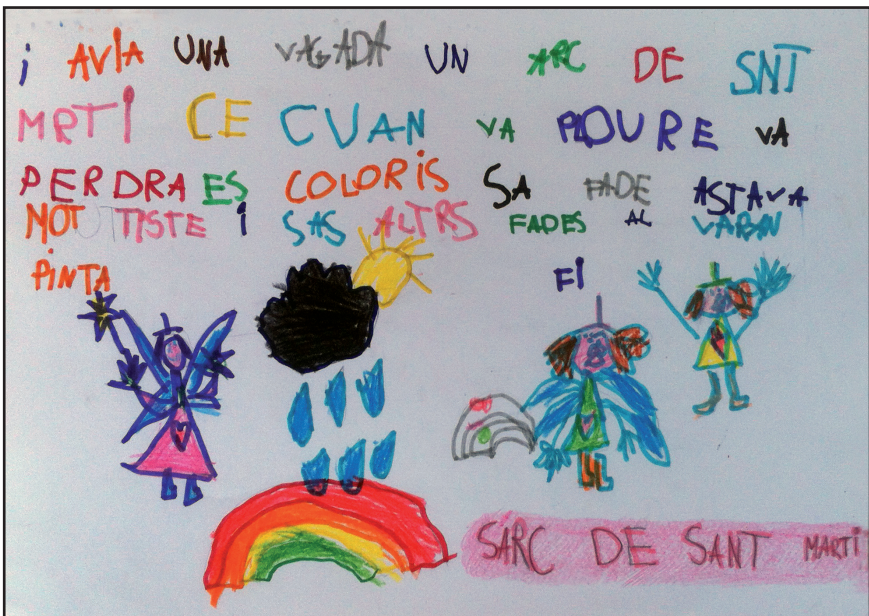 i AVIA UNA VAGADA UN ARC DE SNT
MRTI CE CUAN VA PLOURE VA
PERDRA ES COLORIS SA FADE ASTAVA
MOT TISTE I SAS ALTRS FADES AL VARAN
PINTA
FI
SARC DE SANT MARTI